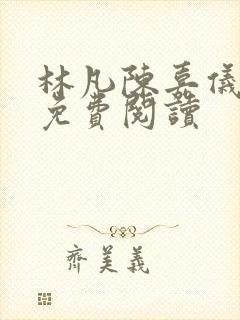 林凡陳嘉儀
免費閱讀
齊美義